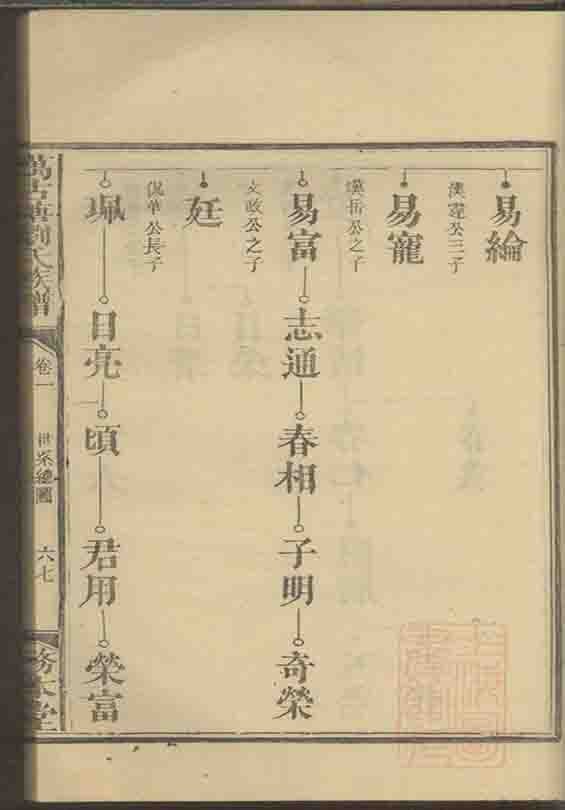 易綸
漢霆公三子
易寵
漢岳公之子
易富
志通
春相
子明
奇榮
文政公之子
廷
侃華公長子
珮
日亮
頃
君用
榮富
萬古塘劉氏族譜
卷一
世系總圖
六七
務本堂